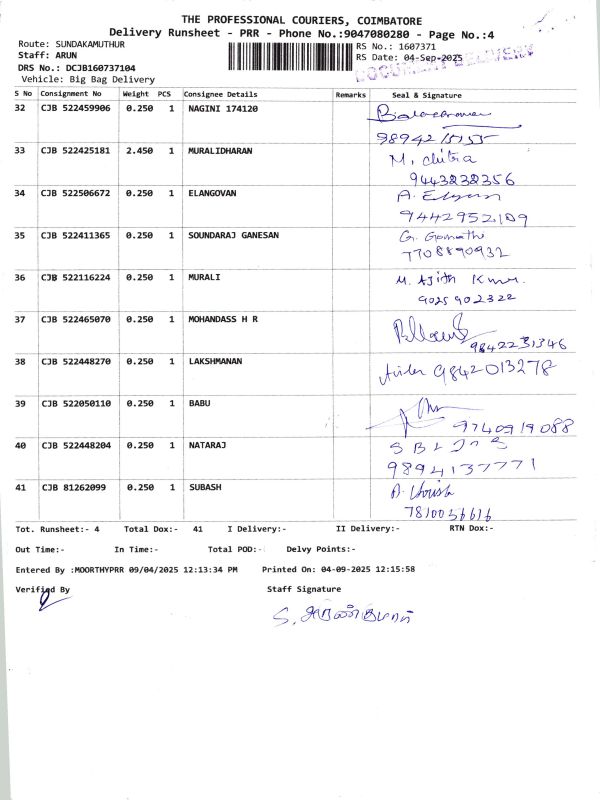 THE PROFESSIONAL COURIERS, COIMBATORE
Delivery Runsheet - PRR - Phone No.:9047080280 - Page No.:4
Route: SUNDAKAMUTHUR RS No.: 1607371
Staff: ARUN RS Date: 04-Sep-2025
DRS No.: DCJB160737104 DOCUMENT DELIVERY
Vehicle: Big Bag Delivery
S No Consignment No Weight PCS Consignee Details Remarks Seal & Signature
32 CJB 522459906 0.250 1 NAGINI 174120
33 CJB 522425181 2.450 1 MURALIDHARAN M. Chitra
9443232356
34 CJB 522506672 0.250 1 ELANGOVAN A.
9442952109
35 CJB 522411365 0.250 1 SOUNDARAJ GANESAN G. Gomathi
7708890932
36 CJB 522116224 0.250 1 MURALI M. Ajith Kumar
9025902322
37 CJB 522465070 0.250 1 MOHANDASS H R
9842231346
38 CJB 522448270 0.250 1 LAKSHMANAN 9842013278
39 CJB 522050110 0.250 1 BABU
9740919088
40 CJB 522448204 0.250 1 NATARAJ
9894137771
41 CJB 81262099 0.250 1 SUBASH
7810056616
Tot. Runsheet:- 4 Total Dox:- 41 I Delivery:- II Delivery:- RTN Dox:-
Out Time:- In Time:- Total POD:- Delvy Points:-
Entered By :MOORTHYPRR 09/04/2025 12:13:34 PM Printed On: 04-09-2025 12:15:58
Verified By Staff Signature
S. அருண்குமார்